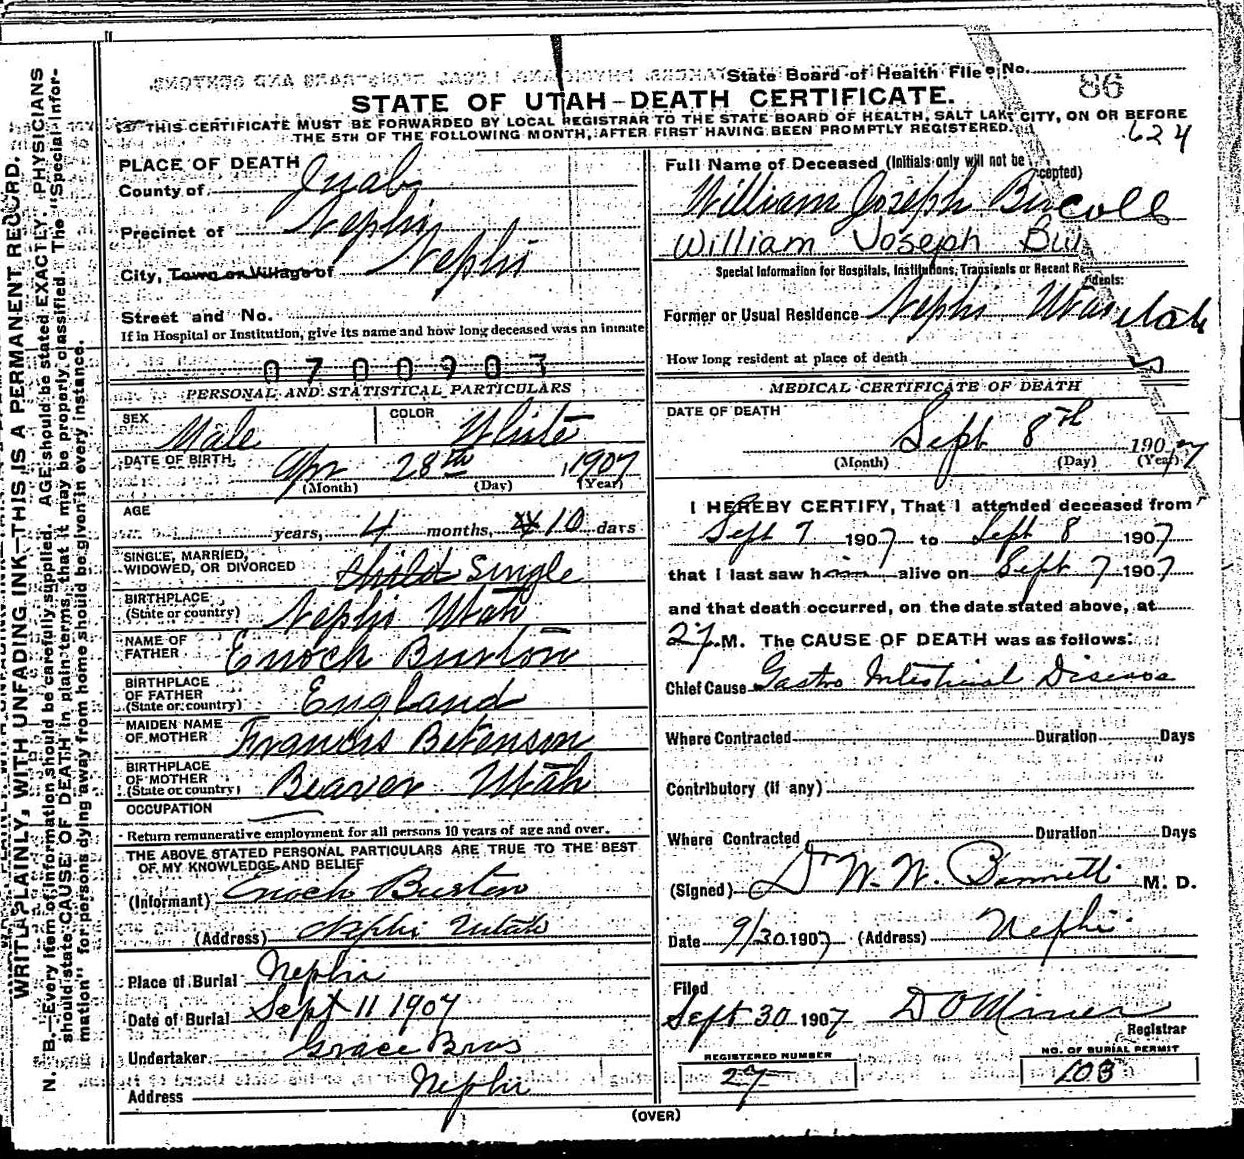 State Board of Health File No.
86
STATE OF UTAH—DEATH CERTIFICATE.
THIS CERTIFICATE MUST BE FORWARDED BY LOCAL REGISTRAR TO THE STATE BOARD OF HEALTH, SALT LAKE CITY, ON OR BEFORE
THE 5TH OF THE FOLLOWING MONTH, AFTER FIRST HAVING BEEN PROMPTLY REGISTERED.
624
WRITE PLAINLY, WITH UNFADING INK—THIS IS A PERMANENT RECORD.
N. B.—Every item of information should be carefully supplied. AGE should be stated EXACTLY. PHYSICIANS
should state CAUSE OF DEATH in plain terms, that it may be properly classified. The "Special Infor-
mation" for persons dying away from home should be given in every instance.
PLACE OF DEATH
County of Juab
Precinct of Nephi
City, Town or Village of Nephi
Street and No.
If in Hospital or Institution, give its name and how long deceased was an inmate
0700903
PERSONAL AND STATISTICAL PARTICULARS
SEX Male
COLOR White
DATE OF BIRTH Apr 28th, 1907
(Month) (Day) (Year)
AGE
years, 4 months, 10 days
SINGLE, MARRIED,
WIDOWED, OR DIVORCED child single
BIRTHPLACE
(State or country) Nephi Utah
NAME OF
FATHER Enoch Burton
BIRTHPLACE
OF FATHER
(State or country) England
MAIDEN NAME
OF MOTHER Francis Betenson
BIRTHPLACE
OF MOTHER
(State or country) Beaver Utah
OCCUPATION
Return remunerative employment for all persons 10 years of age and over.
THE ABOVE STATED PERSONAL PARTICULARS ARE TRUE TO THE BEST
OF MY KNOWLEDGE AND BELIEF
(Informant) Enoch Burton
(Address) Nephi Utah
Place of Burial Nephi
Date of Burial Sept 11 1907
Undertaker Grace Bros
Address Nephi
Full Name of Deceased (Initials only will not be
cepted)
William Joseph Bu
William Joseph Bu
Special Information for Hospitals, Institutions, Transients or Recent Re
dents:
Former or Usual Residence Nephi Utah
How long resident at place of death
MEDICAL CERTIFICATE OF DEATH
DATE OF DEATH
Sept 8th 1907
(Month) (Day) (Year)
I HEREBY CERTIFY, That I attended deceased from
Sept 7 1907 to Sept 8 1907
that I last saw him alive on Sept 7 1907
and that death occurred, on the date stated above, at
M. The CAUSE OF DEATH was as follows:
Chief Cause Gastro Intestinal Disease
Where Contracted Duration Days
Contributory (if any)
Where Contracted Duration Days
(Signed) Dr W. W. Bennett M. D.
Date 9/30 1907 (Address) Nephi
Filed
Sept 30 1907 D O Miner
Registrar
REGISTERED NUMBER
27
NO. OF BURIAL PERMIT
103
(OVER)